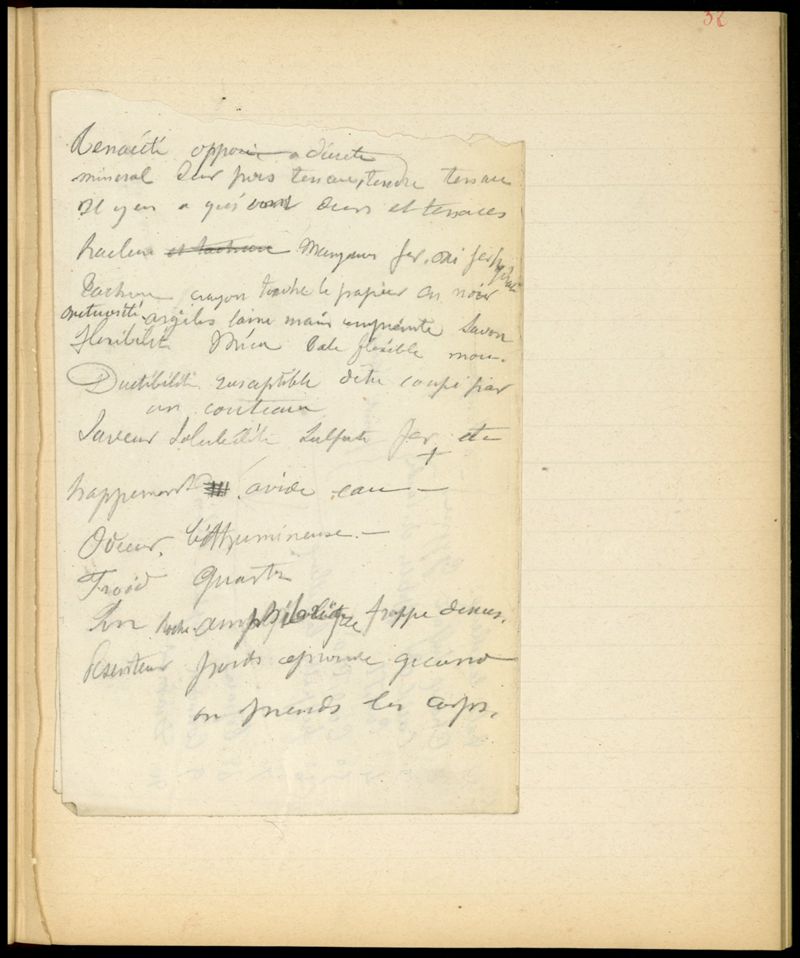 32
Tenacité opposée a dureté
mineral dur puis tenace, tendre tenace
Il y en a qui sont durs et tenaces
Racleur et tachure Manganese fer, oxi fer
Tachure crayon touche le papier en noir
onctuosité argiles laine main empreinte Savon
flexibilité Mica Talc flexible mou.
Ductibilité susceptible detre coupé par
un couteau
Saveur Solubilité Sulfate fer etc
+
happement avide eau —
Odeur, bithumineuse. —
Froid Quartz
Son Roche amphibolique frappe dessus.
Pesenteur poids eprouve quand
on prends les corps.